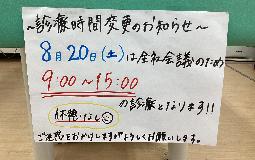 ～診療時間変更のお知らせ～
8月20日(土)は全社会議のため
9:00～15:00
の診療となります!!
休憩なし
ご迷惑をおかけしますがよろしくお願いします。